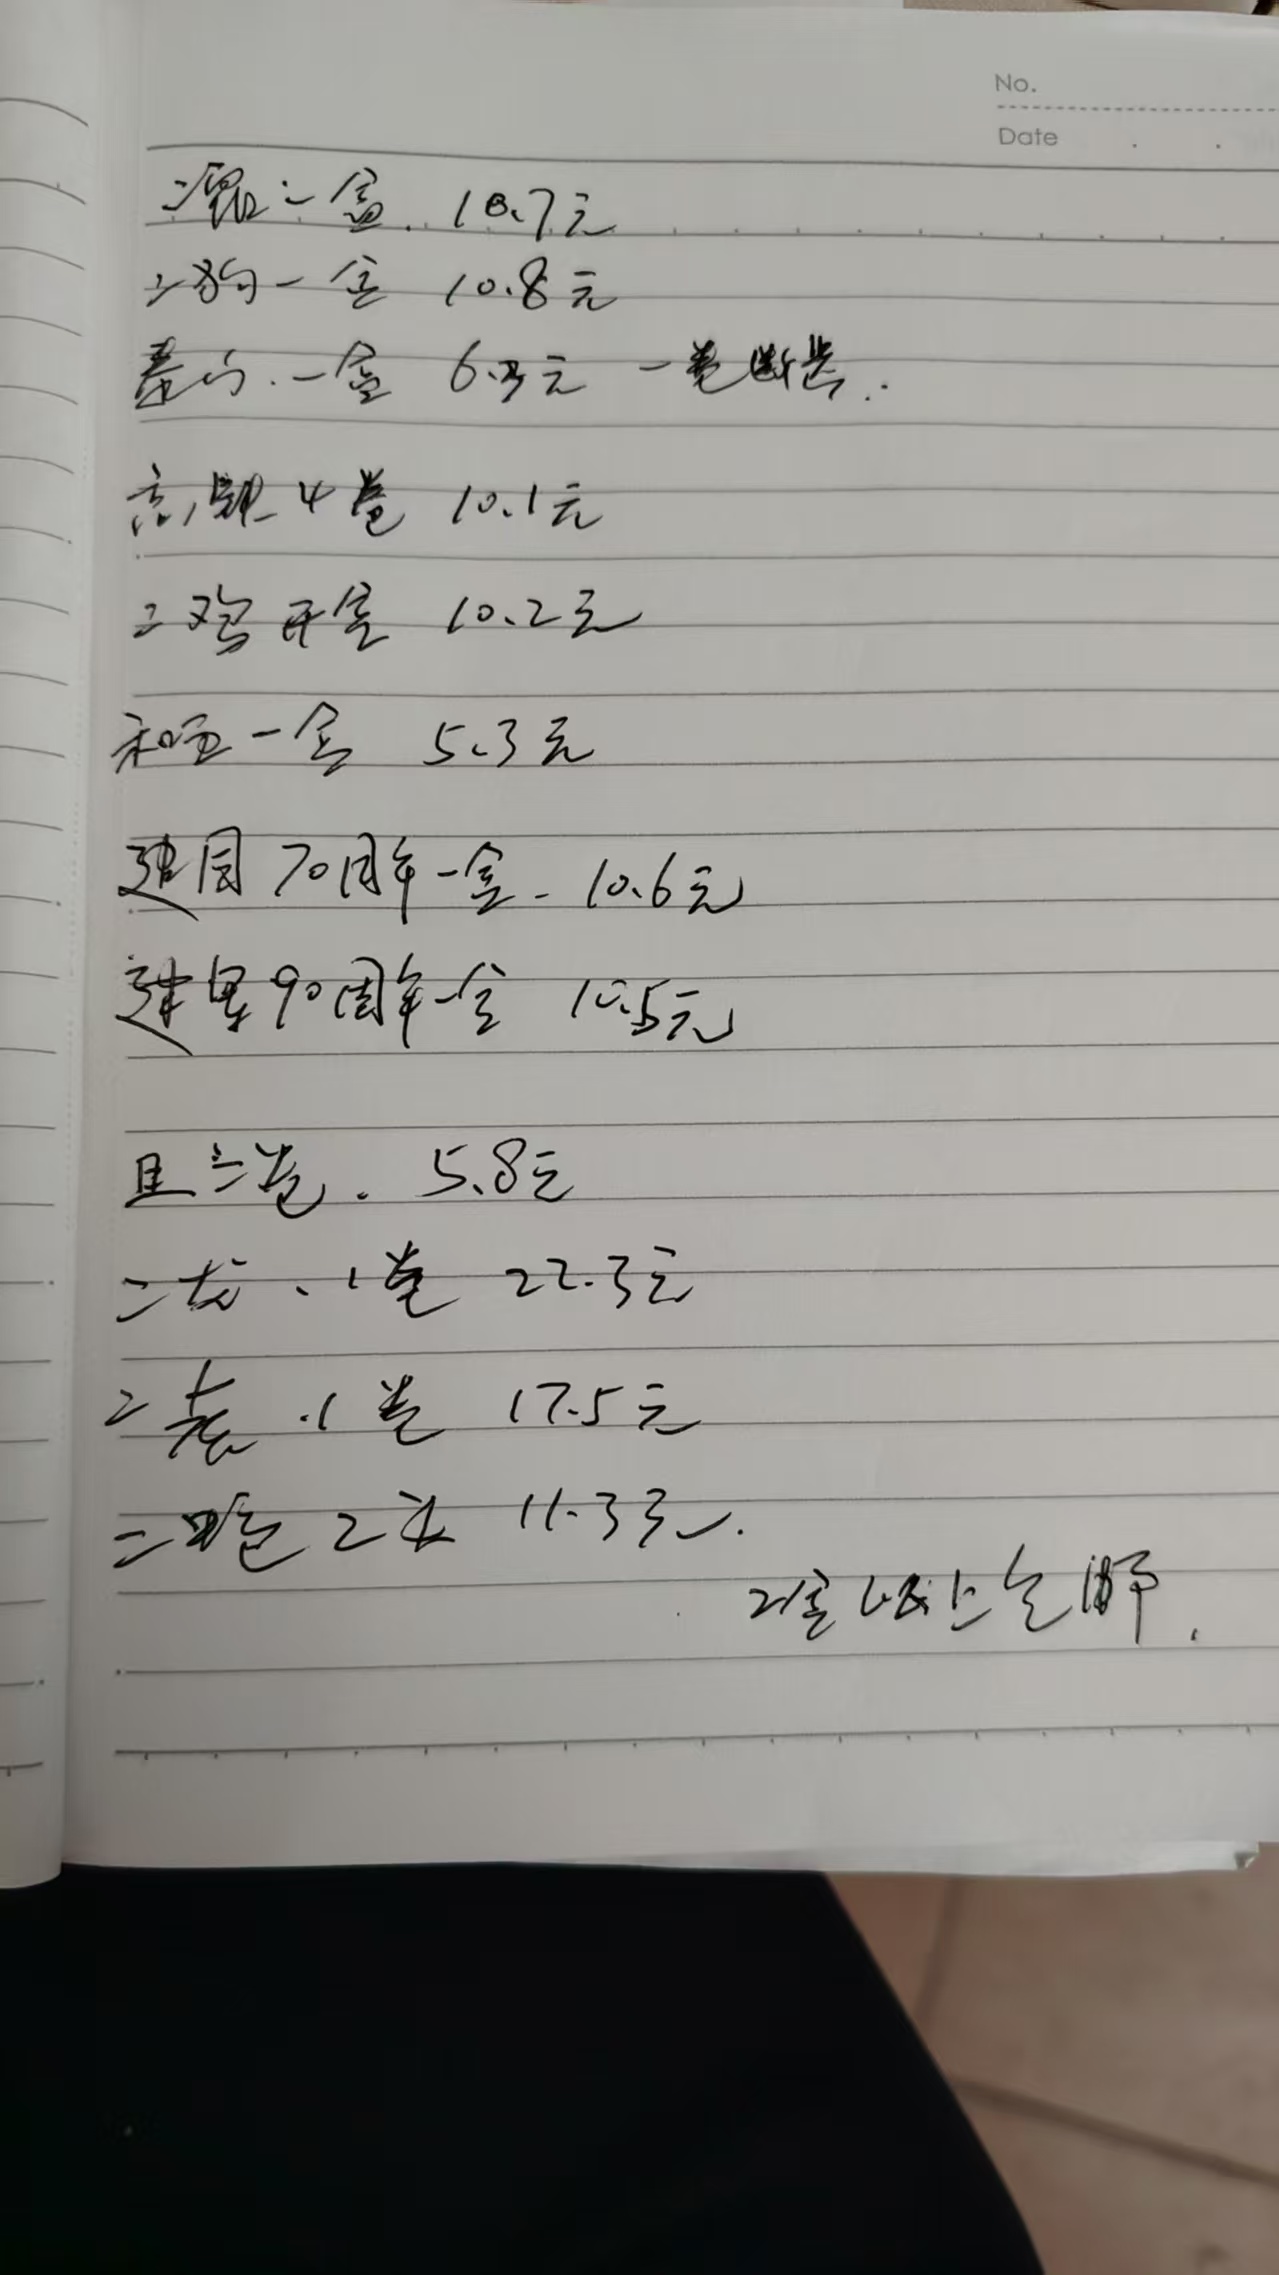 No.
Date
二鼠一盒. 10.7元
二狗一盒 10.8元
泰山.一盒 6.3元 一卷断齿.
高铁4卷 10.1元
二鸡开盒 10.2元
和五一盒 5.3元
建国70周年一盒. 10.6元
建军90周年一盒 10.5元
卷. 5.8元
二龙.1卷 22.3元
二 .1卷 17.5元
二 2 11.3元.
2盒以上包邮.